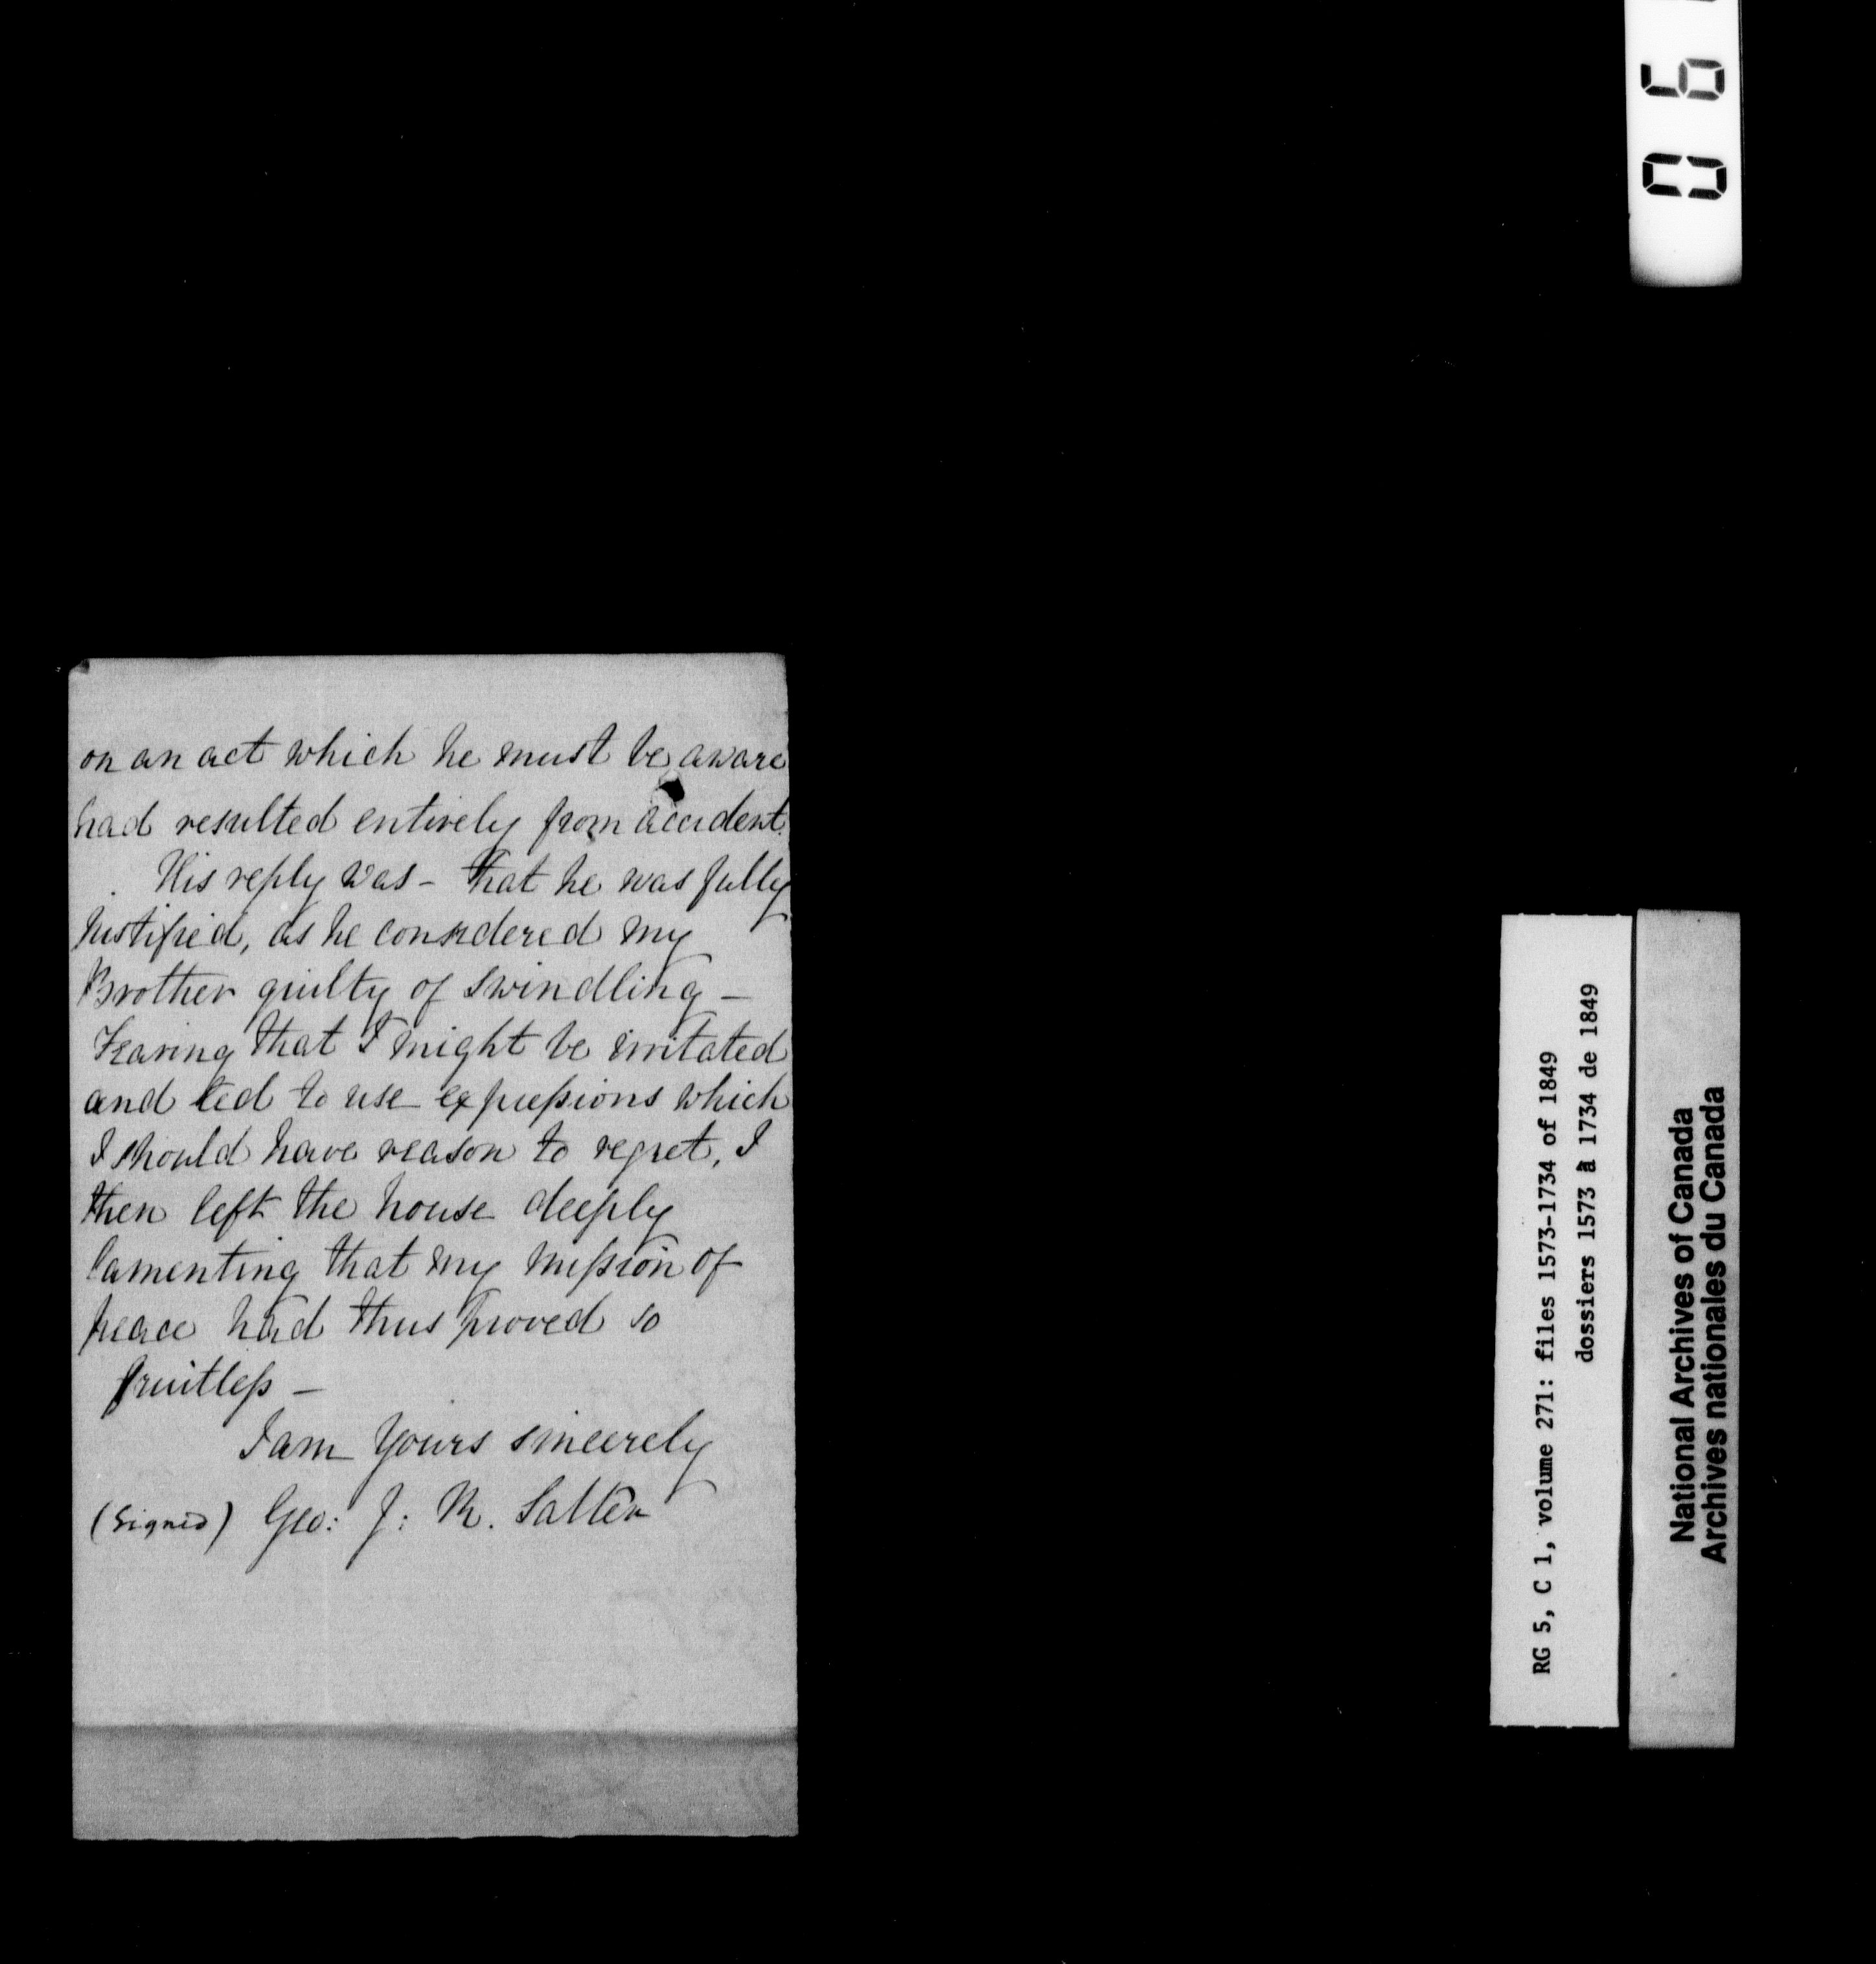 on an act which he must be aware
had resulted entirely from accident.
His reply was - that he was fully
justified, as he considered my
Brother guilty of swindling -
Fearing that I might be irritated
and led to use expressions which
I should have reason to regret, I
then left the house deeply
lamenting that my mission of
peace had thus proved so
fruitless -
I am Yours sincerely
(Signed) Geo: J: R. Salter
RG 5, C 1, volume 271: files 1573-1734 of 1849
dossiers 1573 à 1734 de 1849
National Archives of Canada
Archives nationales du Canada
06